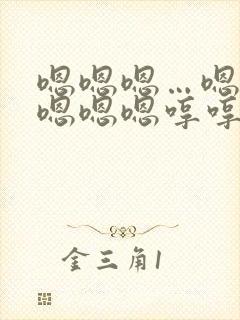 嗯嗯嗯…嗯
嗯嗯嗯哼哼
金三角1